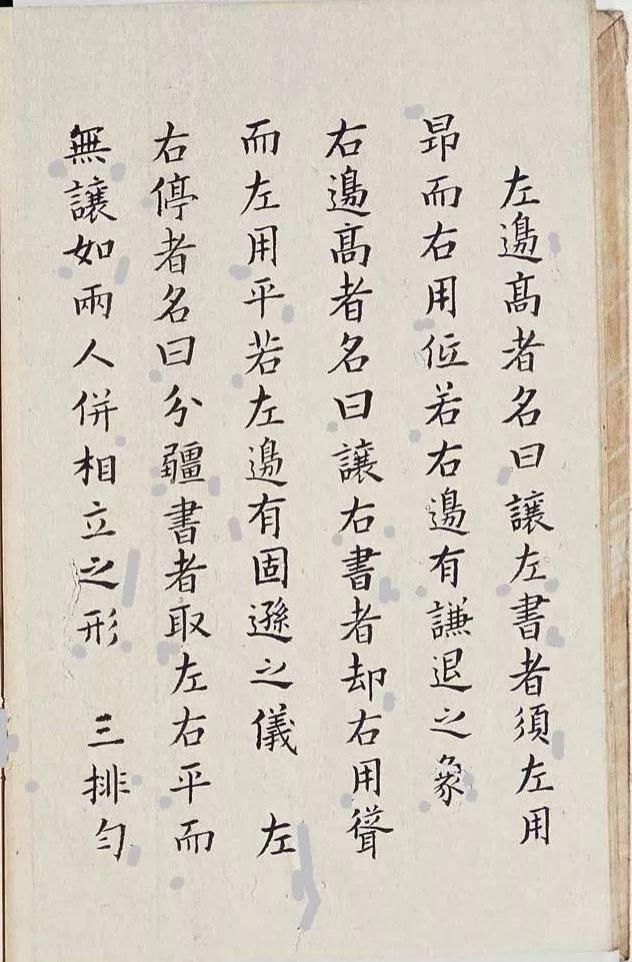 左邊高者名曰讓左書者須左用
昻而右用低若右邊有謙退之象
右邊高者名曰讓右書者却右用聳
而左用平若左邊有固遜之儀 左
右停者名曰分疆書者取左右平而
無讓如兩人併相立之形 三排勻